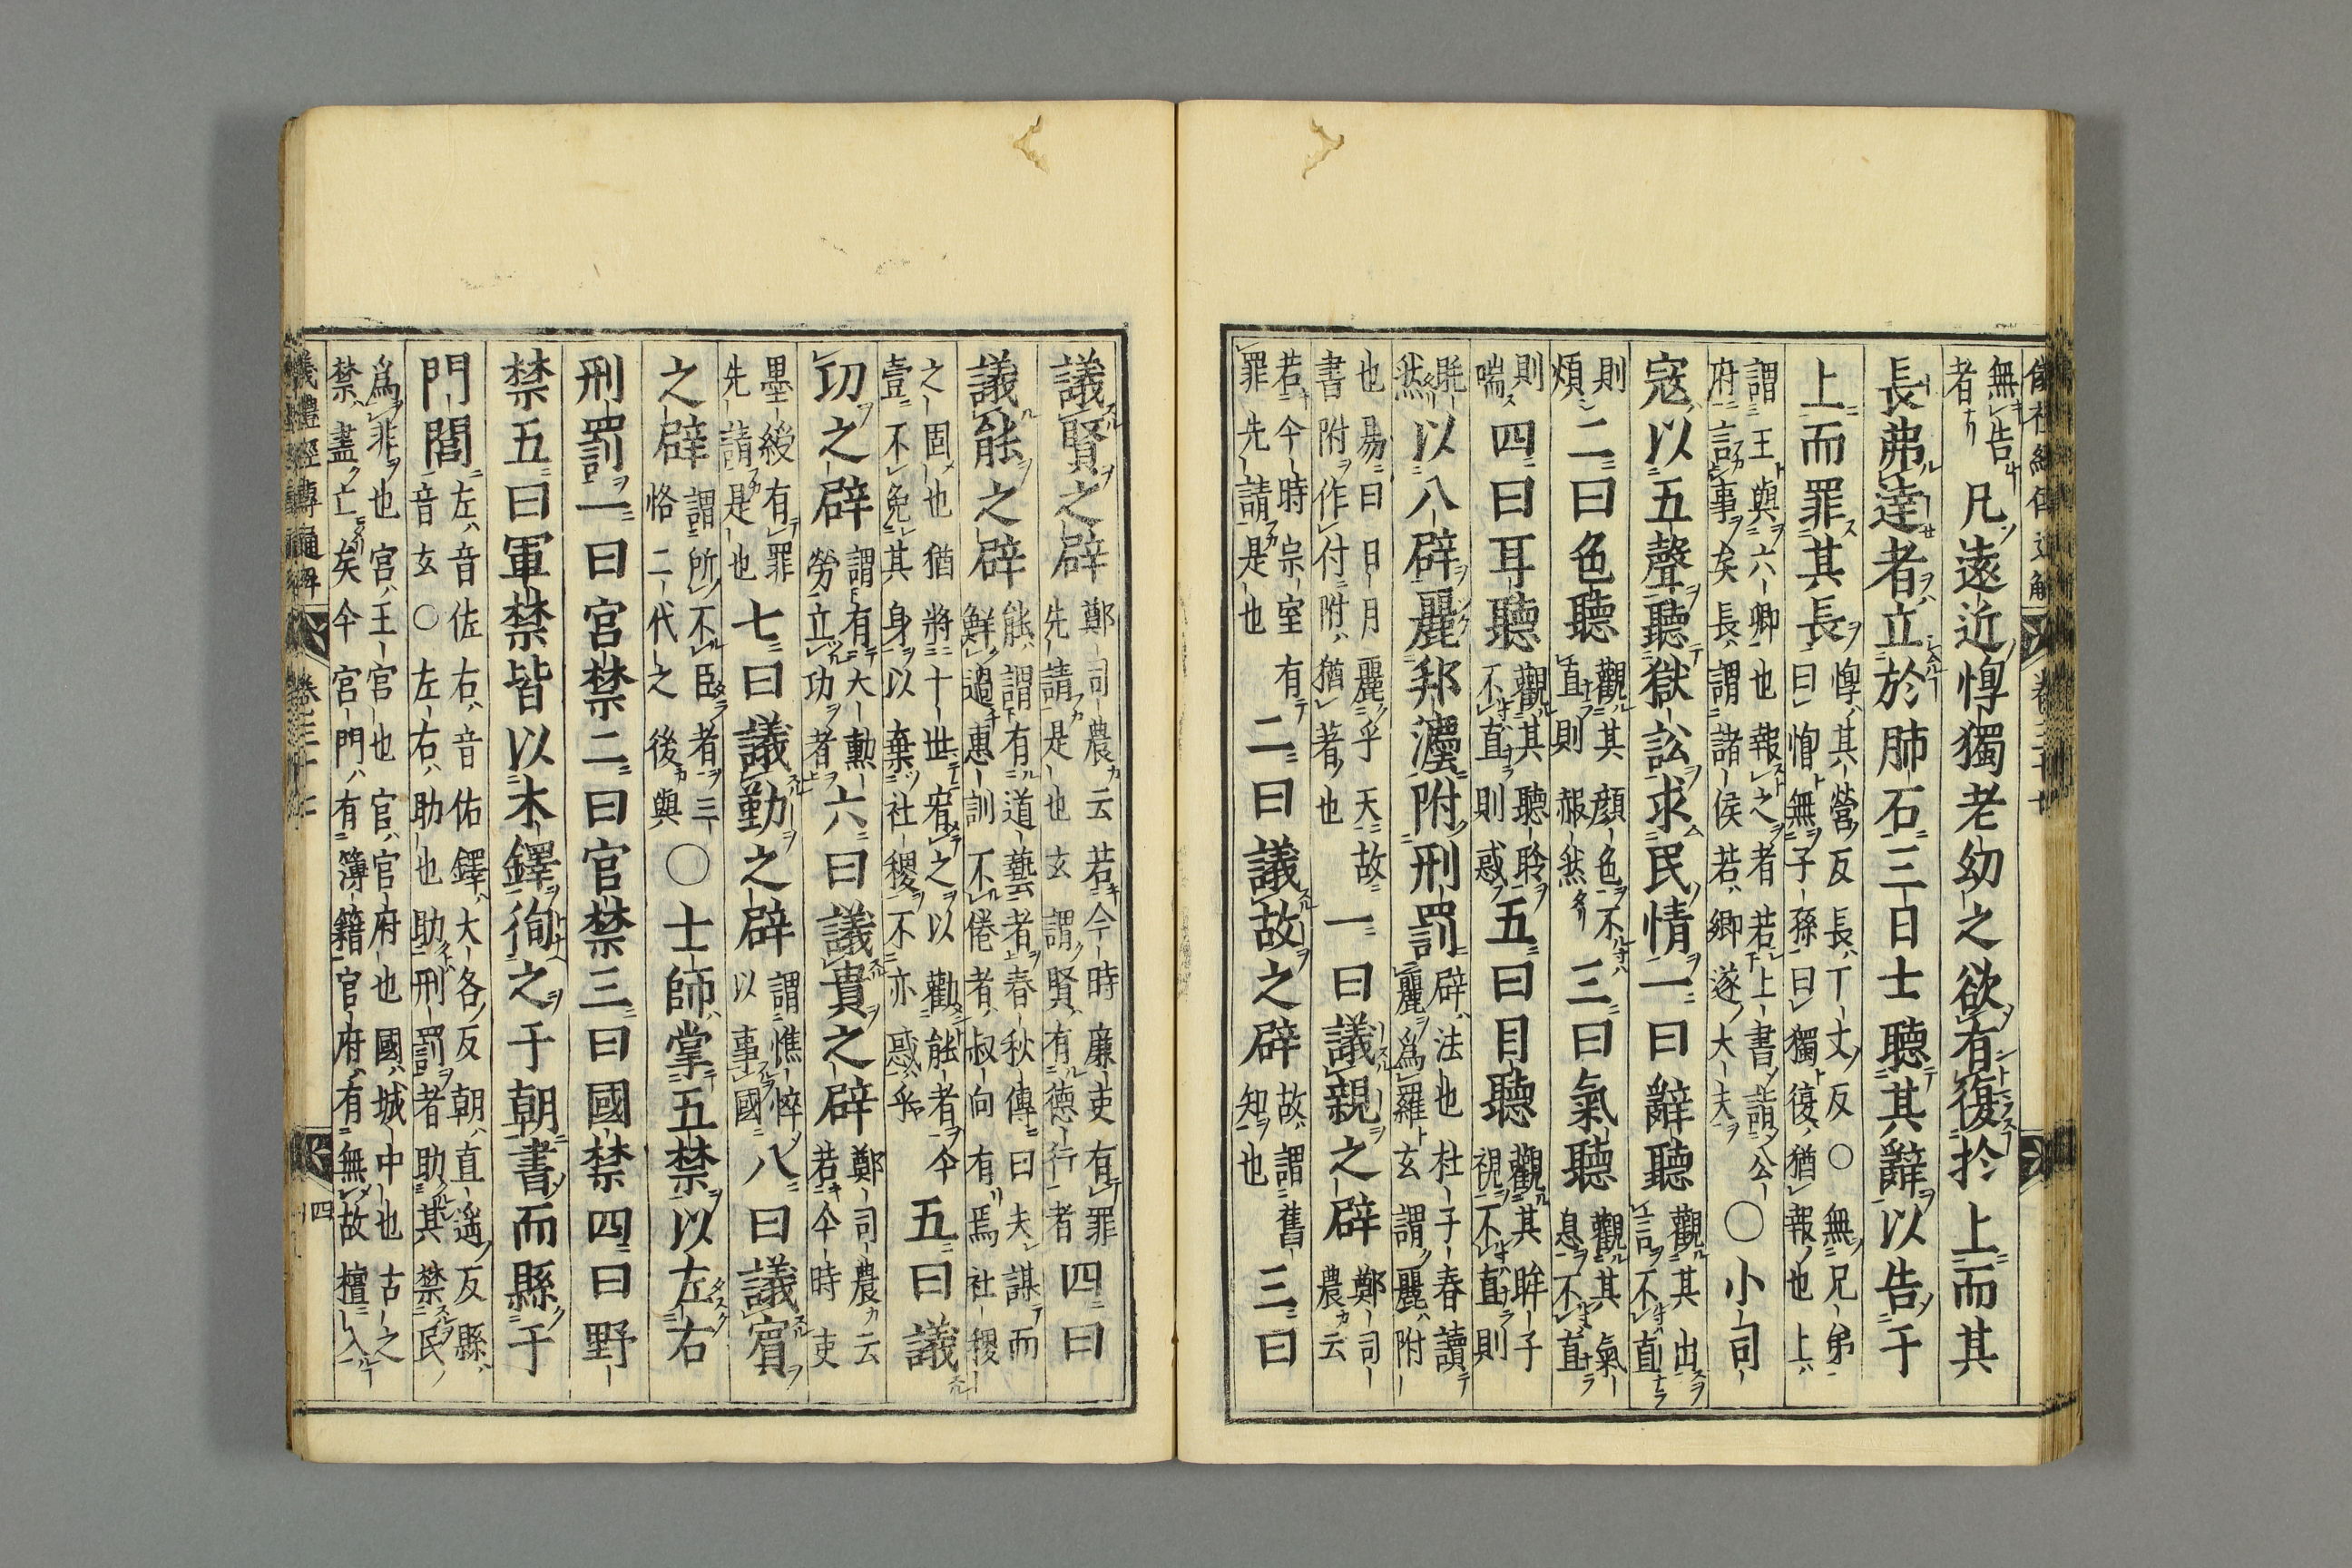 無告者凡遠近惸獨老幼之欲有復於上而其
長弗達者立於肺石三日士聽其辭以告于
上而罪其長惸其營反長丁丈反○無兄弟曰惸無子孫曰獨復猶報也上
謂王與六卿也報之者若上書詣公府言事矣長謂諸侯若卿遂大夫○小司
寇以五聲聽獄訟求民情一曰辭聽觀其出言不直
則煩二曰色聽觀其顏色不直則赧然三曰氣聽觀其氣息不直
則喘四曰耳聽觀其聽聆不直則惑五曰目聽觀其眸子視不直則
眊然以八辟麗邦灋附刑罰辟法也杜子春讀麗爲羅玄謂麗附
也易曰日月麗乎天故書附作付附猶著也一曰議親之辟鄭司農云
若今時宗室有罪先請是也二曰議故之辟故謂舊知也三曰
議賢之辟鄭司農云若今時廉吏有罪先請是也玄謂賢有德行者四曰
議能之辟能謂有道藝者春秋傳曰夫謀而鮮過惠訓不倦者叔向有焉社稷
之固也猶將十世宥之以勸能者今壹不免其身以棄社稷不亦惑乎五曰議
功之辟謂有大勳勞立功者六曰議貴之辟鄭司農云若今時吏
墨綬有罪先請是也七曰議勤之辟謂憔悴以事國八曰議賓
之辟謂所不臣者三恪二代之後與○士師掌五禁以左右
刑罰一曰宮禁二曰官禁三曰國禁四曰野
禁五曰軍禁皆以木鐸徇之于朝書而縣于
門閭左音佐右音佑鐸大各反朝直遥反縣音玄○左右助也助刑罰者助其禁民
爲非也宮王宮也官官府也國城中也古之禁盡亡矣今宮門有簿籍官府有無故擅入
儀禮經傳通解 卷三十七 四